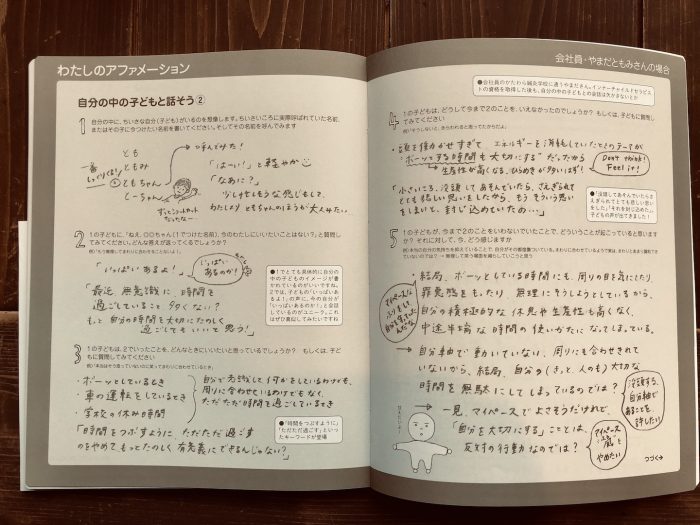 わたしのアファメーション
自分の中の子どもと話そう②
1 自分の中に、ちいさな自分(子ども)がいるのを想像します。ちいさいころに実際呼ばれていた名前、
またはその子に今つけたい名前を書いてください。そしてその名前を呼んでみます
とも
ともみ
ともちゃん
とーちゃん
→呼んでみた!
「はーい!」と軽やか
「なあに?」
少しけむそうな感じもして、
わたしより ともちゃんのほうが大人みたい
2 1の子どもに、「ねえ、○○ちゃん(1でつけた名前)、今のわたしにいいたいことはない?」と質問し
てみてください。どんな答えが返ってくるでしょうか?
「いっぱいあるよ!」
いっぱい
あるのか!
「最近 無意識に 時間を
過ごしていること 多くない?
もっと 自分の時間を大切にたのしく
過ごしてもいいと思う!」
●1でとても具体的に自分の
中の子どものイメージが書
かれているのがいいですね。
2では、子どもの「いっぱいあ
るよ!」の声に、今の自分が
「いっぱいあるのか!」と会話
しているのがユニーク。これ
はぜひ真似してみたいですね
3 1の子どもは、2でいったことを、どんなときにいいたいと思っているでしょうか? もしくは、子ど
もに質問してみてください
・ボーッとしているとき
・車の運転をしているとき
・学校の休み時間
自分で意識して何かをしているわけでも、
周りに合わせているわけでもなく、
ただただ時間を過ごしているとき
「時間をつぶすように、ただただ過ごす
のをやめて もっとたのしく 有意義にできるんじゃない?」
●「時間をつぶすように」
「ただただ過ごす」といっ
たキーワードが登場
会社員・やまだともみさんの場合
●会社員のかたわら鍼灸学校に通うやまださん。インナーチャイルドセラピス
トの資格を取得した後も、自分の中の子どもとの会話は欠かさないとか
4 1の子どもは、どうして今まで2のことを、いえなかったのでしょうか? もしくは、子どもに質問し
てみてください
・頭を働かせすぎて エネルギーを消耗していたときのテーマが
"ボーッとする時間も大切にする"だったから
→生産性が高くなる、ひらめきが多いはず!
Don't think!
Feel it!
「小さいころ、没頭してあそんでいたら、さえぎられて
とても悲しい思いをしたから、もう そういう思い
をしまいと、封じ込めていたの…」
●「没頭してあそんでいたらさ
えぎられてとても悲しい思い
をした」「それを封じ込めた」。
子どもの声が出てきました!
5 1の子どもが、今まで2のことをいわないでいたことで、どういうことが起こっていると思います
か? それに対して、今、どう感じますか
・結局、ボーッとしている時間にも、周りの目を気にしたり
罪悪感をもったり、無理にそうしようとしているから、
自分の積極的な休息や生産性も高くなく、
中途半端な時間の使いかたになってしまっている。
→自分軸で動いていない、周りにも合わせきれて
いないから、結局、自分の(きっと、人のも)大切な
時間を無駄にしてしまっているのでは?
→一見、マイペースでよさそうだけれど、
「自分を大切にする」ことは、
反対の行動なのでは?
没頭する、
自分軸で
あることを、
許したい
マイペース
"風"を
やめたい
つづく→